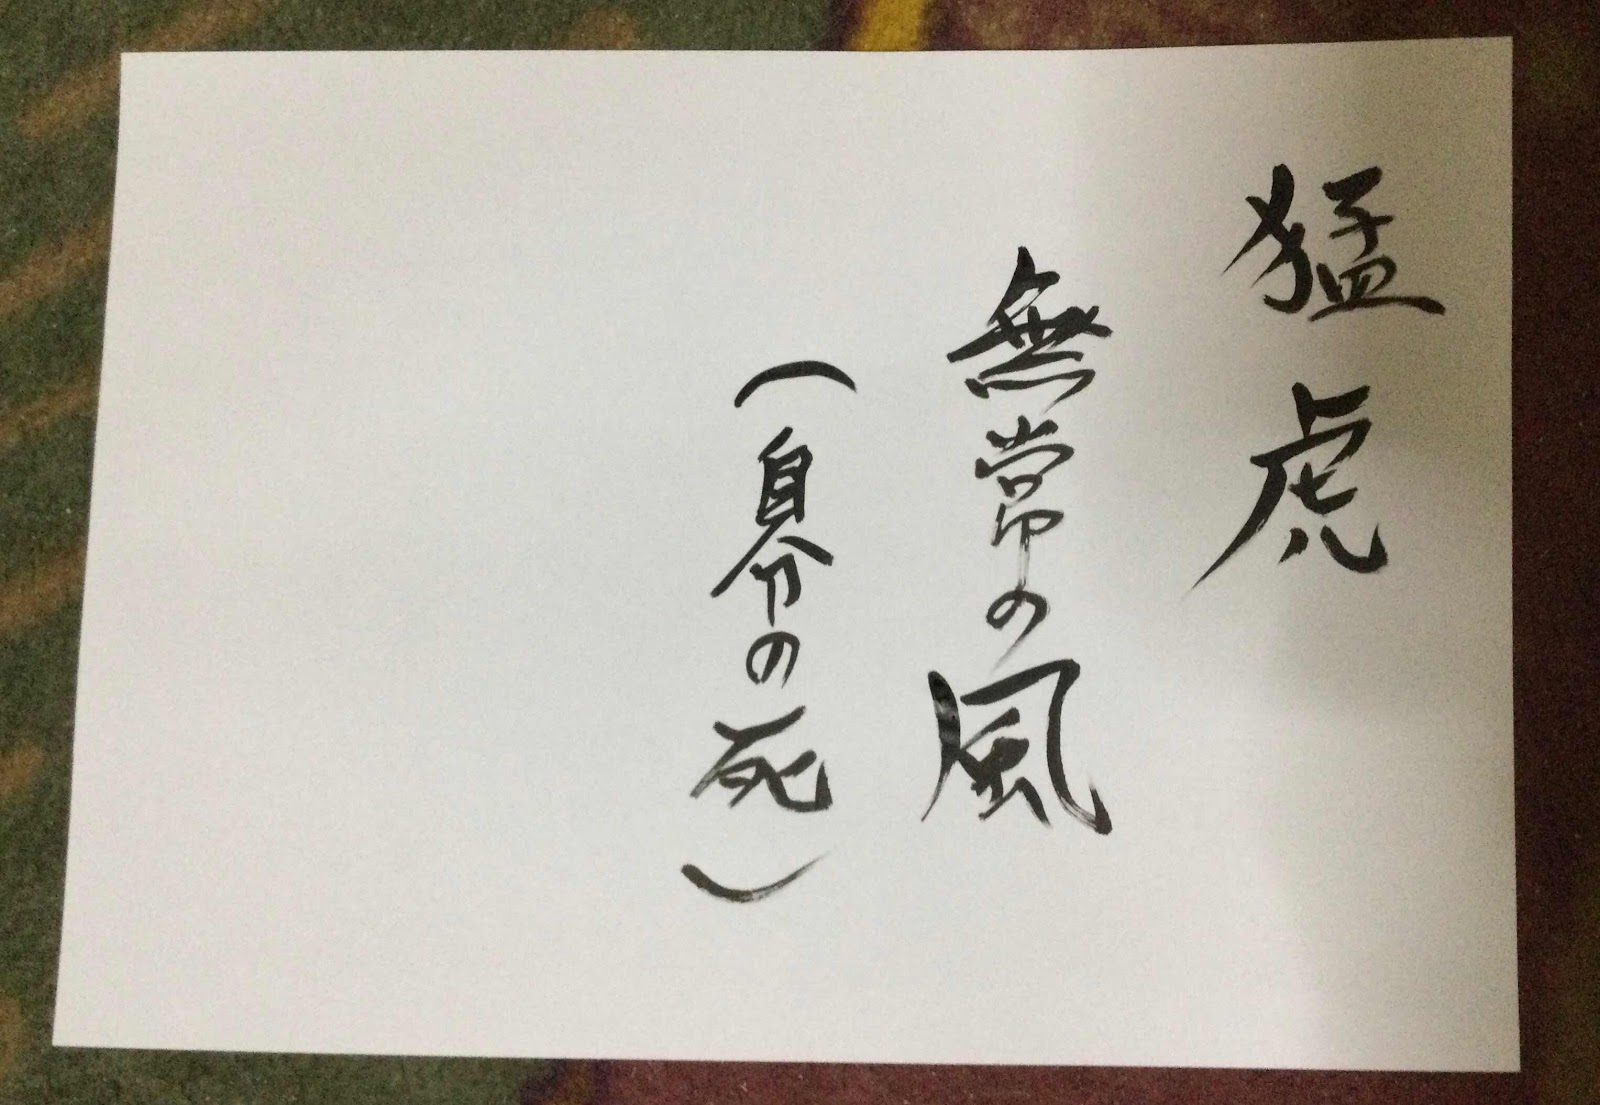 猛虎
無常の風
(自分の死)